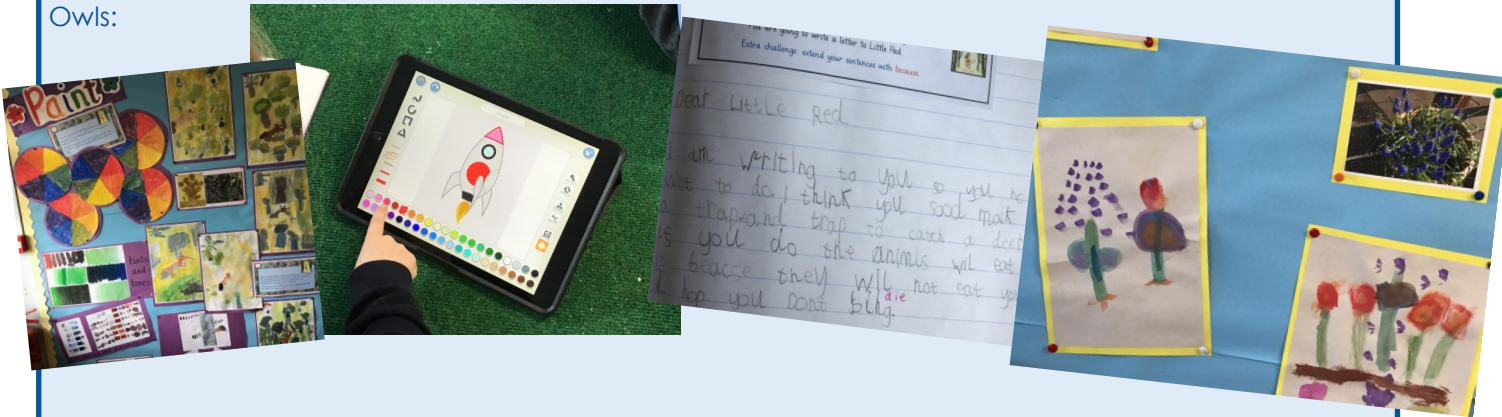 Owls:
Paint
tints
and
tones
You are going to write a letter to Little Red.
Extra challenge: extend your sentences with because.
Dear Little Red
I am writing to you so you no
wot to do. I think you sood mak
a trap and trap to catch a deer
is you do the animls wil eat
beacse they wil not eat you
I hop you Dont
die